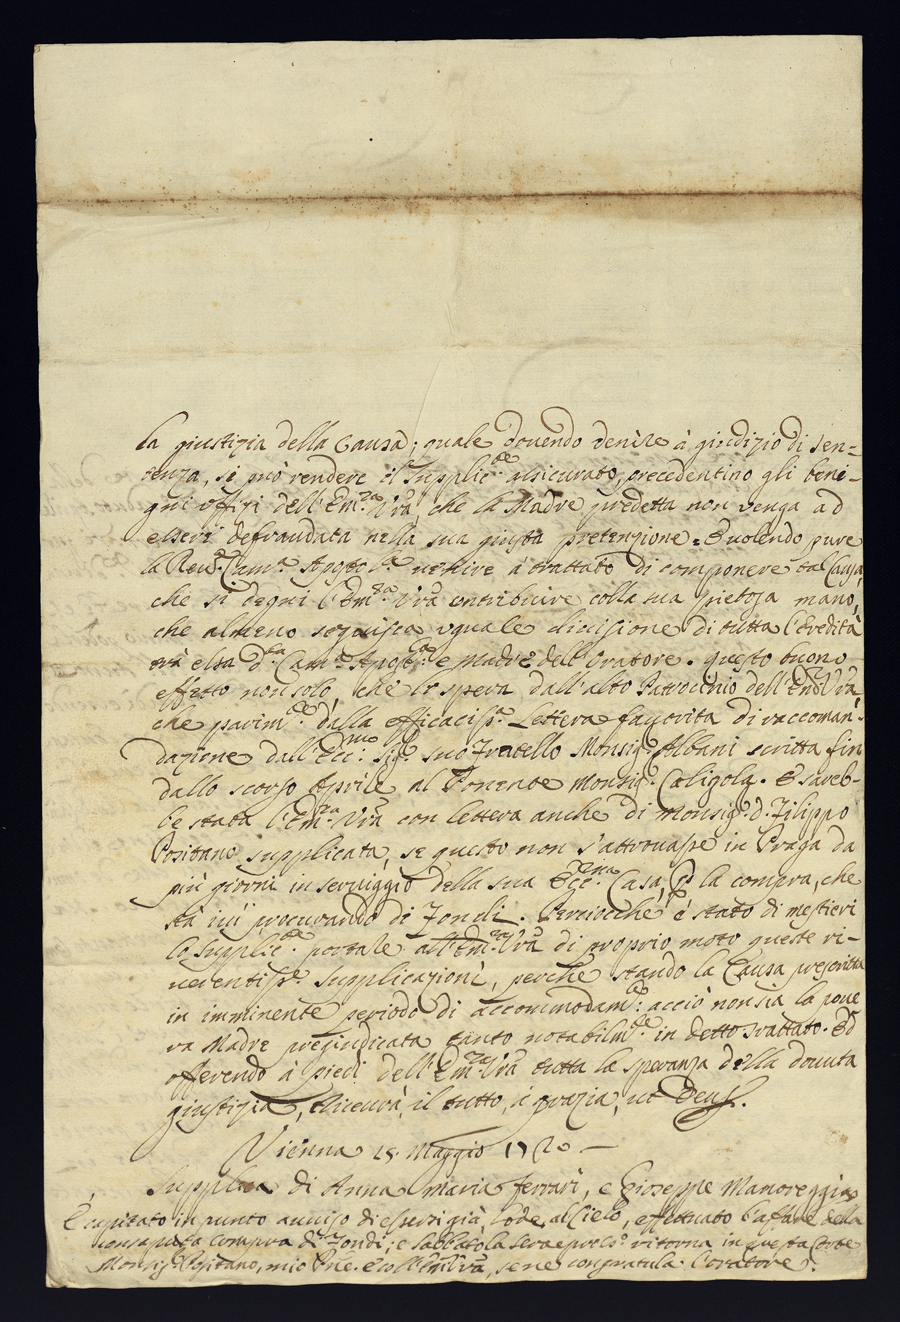 la giustizia della Causa; quale dovendo venire à giudizio di sen-
tenza, si può rendere il Supplic.te assicurato, precedentino gli beni-
gni offizi dell'Em.za Vrã, che la Madre predetta non venga ad
esseri defraudata nella sua giusta pretenzione. E volendo pure
la Reu.da Cam.a Apost.ca venire à trattato di componere tal Causa,
che si degni l'Em.za Vrã contribuire colla sua pietosa mano,
che almeno seguisca uguale divisione di tutta l'Eredità
trà essa d.ta Cam.a Apost.ca e Madre dell'Oratore. Questo buono
effetto non solo, che lo spera dall'alto Patrocinio dell'Em.za Vrã,
che parim.te dalla efficaciss.a Lettera favorita di raccoman-
dazione dall'Ecc.mo Sig.r suo Fratello Monsig.r Albani scritta fin
dallo scorso Aprile al Ponente Monsig.r Caligola. E sareb-
be stata l'Em.za Vrã con lettera anche di Monsig.r d. Filippo
Positano supplicata, se questo non s'attrovasse in Praga da
più giorni in serviggio della sua Ecc.ma Casa, p la compra, che
stà ivi procurando di Fondi. Perciocche è stato di mestieri
lo Supplic.te portare all'Em.za Vrã di proprio moto queste ri-
verentiss.e supplicazioni, perche stando la Causa prescritta
in imminente periodo di accommodam.to: acciò non sia la pove
ra Madre pregiudicata tanto notabilm.te in detto trattato. Ed
offerendo à piedi dell'Em.za Vrã tutta la speranza della dovuta
giustizia, riceverà il tutto, à grazia, ut Deus.
Vienna 25. Maggio 1720 —
Supplica di Anna Maria Ferrari, e Giuseppe Manoreggia
È capitato in punto avviso d'essersi già, lode al Cielo, effettuato l'affare della
consaputa compra di Fondi; e Sabbato la sera ritorna in questa Corte
Monsig.r Positano, mio Pne. E coll'Em.za Vrã, se ne congratula l'oratore.